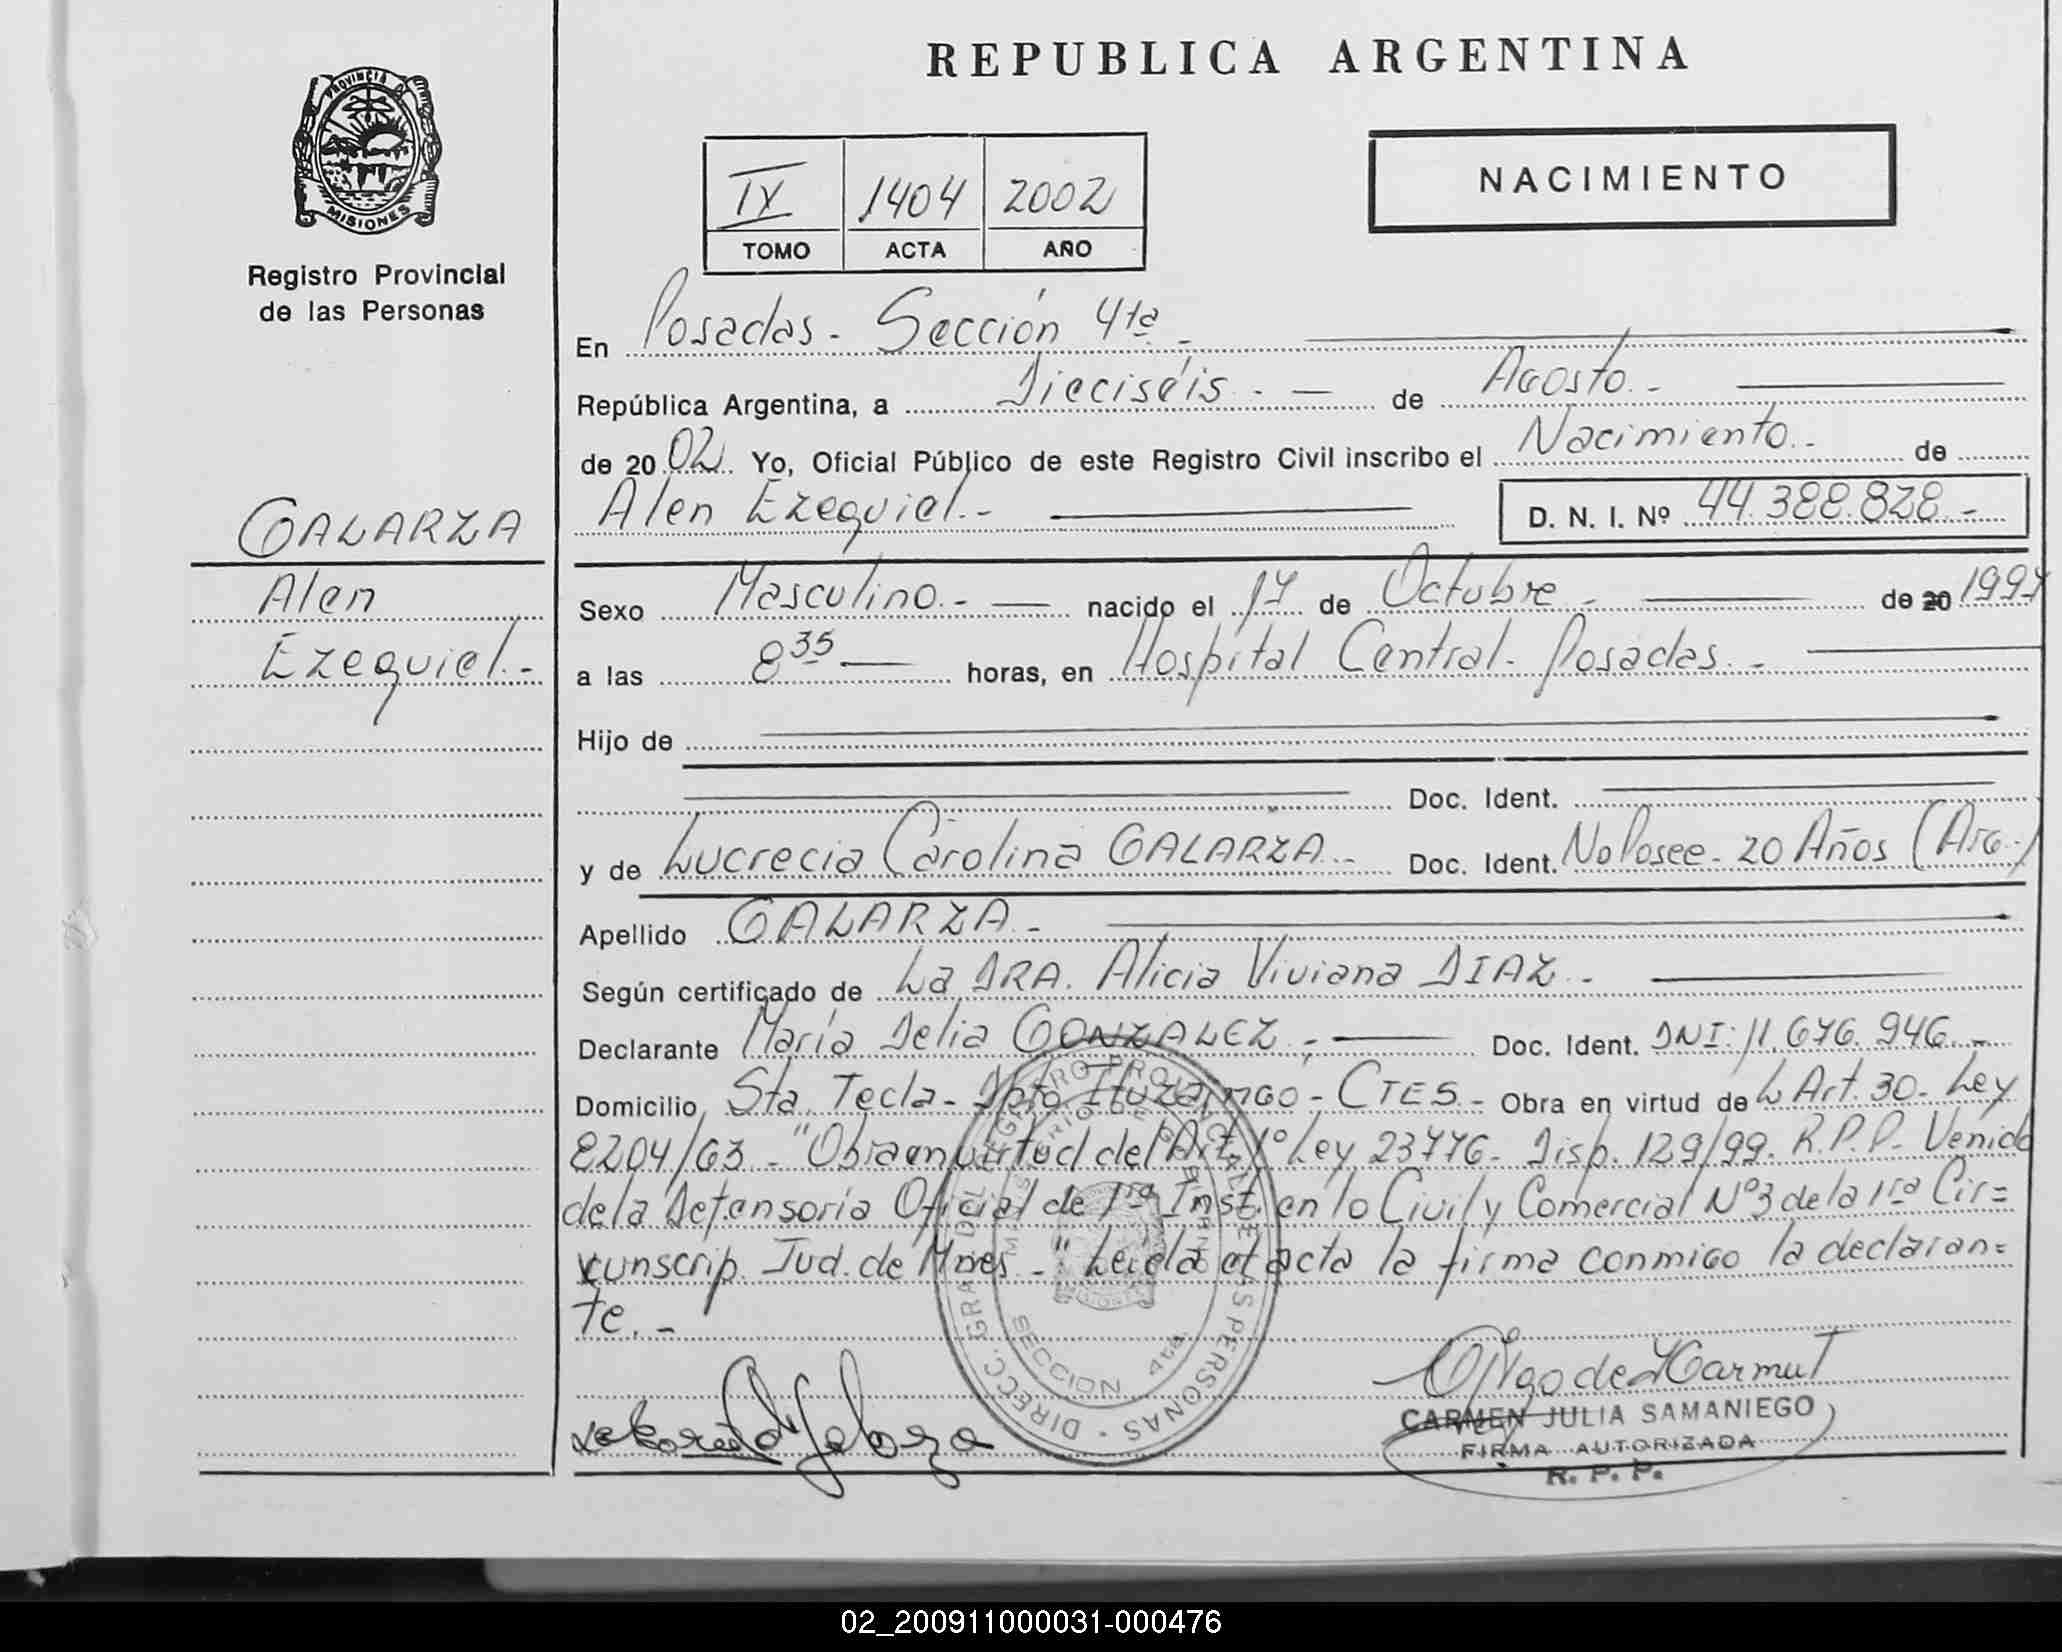 REPUBLICA ARGENTINA
PROVINCIA DE MISIONES
Registro Provincial
de las Personas
IV 1404 2002
TOMO ACTA AÑO
NACIMIENTO
En Posadas - Sección 4ta -
República Argentina, a Dieciséis. - de Agosto. -
de 20 02 Yo, Oficial Público de este Registro Civil inscribo el Nacimiento. - de
Alen Ezequiel. - D. N. I. Nº 44.388.828. -
GALARZA
Alen
Ezequiel. -
Sexo Masculino. - nacido el 17 de Octubre - de 20 1997
a las 8 35 horas, en Hospital Central - Posadas. -
Hijo de
Doc. Ident.
y de Lucrecia Carolina GALARZA. - Doc. Ident. No Posee - 20 Años (Arg.)
Apellido GALARZA. -
Según certificado de La DRA. Alicia Viviana DIAZ. -
Declarante María Delia GONZALEZ. - Doc. Ident. DNI: 11.676.946. -
Domicilio Sta. Tecla - Dpto Ituzaingó - CTES. - Obra en virtud de L. Art. 30 - Ley
8204/63. - "Obra en virtud del Art. 1º Ley 23776 - Disp. 129/99. R.P.P. - Venido
de la Defensoría Oficial de 1ra Inst. en lo Civil y Comercial Nº 3 de la 1ra Cir=
cunscrip. Jud. de Mnes - " Leída el acta la firma conmigo la declaran=
te. -
DIRECC. GRAL DEL REGISTRO PROVINCIAL DE LAS PERSONAS
SECCION 4ta
CARMEN JULIA SAMANIEGO
FIRMA AUTORIZADA
R. P. P.
02_200911000031-000476